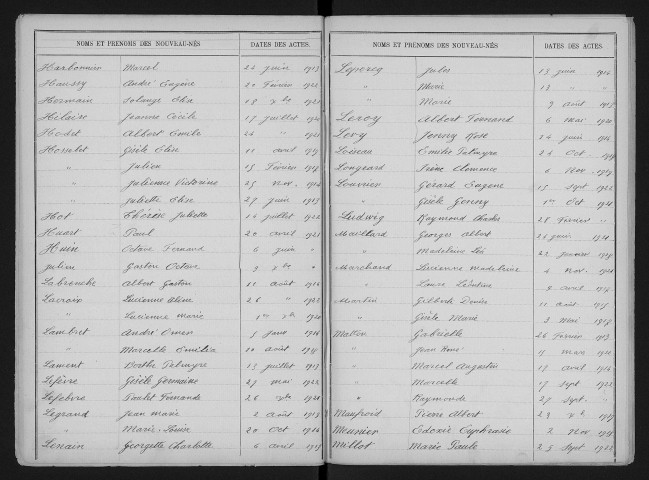 NOMS ET PRÉNOMS DES NOUVEAU-NÉS DATES DES ACTES.
Harbonnier Marcel 22 juin 1913
Haussy André Eugène 20 Février 1922
Hermain Solange Elia 18 xbre 1921
Hélaire Jeanne Cécile 17 juillet 1920
Hodet Albert Emile 24 "
Horselet Gisèle Elise 11 avril
" Julien 15 Février
" Julienne Victorine 25 Nov.
" Juliette Elise 27 juin 1913
Hot Thérèse Juliette 16 juillet 1922
Huart Paul 20 avril 1921
Huin Octave Fernand 6 juin "
Julien Gaston Octave 9 xbre "
Labrenche Albert Gaston 11 août
Lacroix Lucienne Aline 26 " 1922
" Lucienne Marie 1er xbre 1920
Lambret André Omer 5 janv
" Marcelle Emilia 10 août
Lament Berthe Palmyre 13 juillet 1913
Lefèvre Gisèle Germaine 27 mai 1922
Lefebvre Paulet Fernande 26 xbre
Legrand Jean Marie 2 août 1913
" Marie-Louise 20 Oct
Lenain Georgette Charlotte 6 avril 1913
NOMS ET PRÉNOMS DES NOUVEAU-NÉS DATES DES ACTES.
Lepercq Jules 13 juin
" Marie 13 " "
" Marie 9 août
Leroy Albert Fernand 6 mai
Levy Jenny Rose 24 juin
Loiseau Emilie Palmyre 24 Oct.
Longeard Irène Clémence 6 Nov.
Louvrier Gérard Eugène 15 Sept 1922
" Gisèle Jenny 1er Oct
Ludwig Raymond Charles 28 Février "
Maillard Georges Albert 26 juin
" Madeleine Léa 22 janvier
Marchand Lucienne Madeleine 4 nov.
" Laure Léontine 9 avril
Martin Gilberte Denise 11 août
" Gisèle Marie 3 mai
Matton Gabrielle 26 Février 1913
" Jean René 15 mars
" Marcel Augustin 13 avril
" Marcelle 17 Sept 1922
" Raymonde 27 Sept. "
Maufroid Pierre Albert 29 xbre
Meusnier Edoxie Euphrasie 2 Nov.
Millot Marie Paule 23 Sept 1922